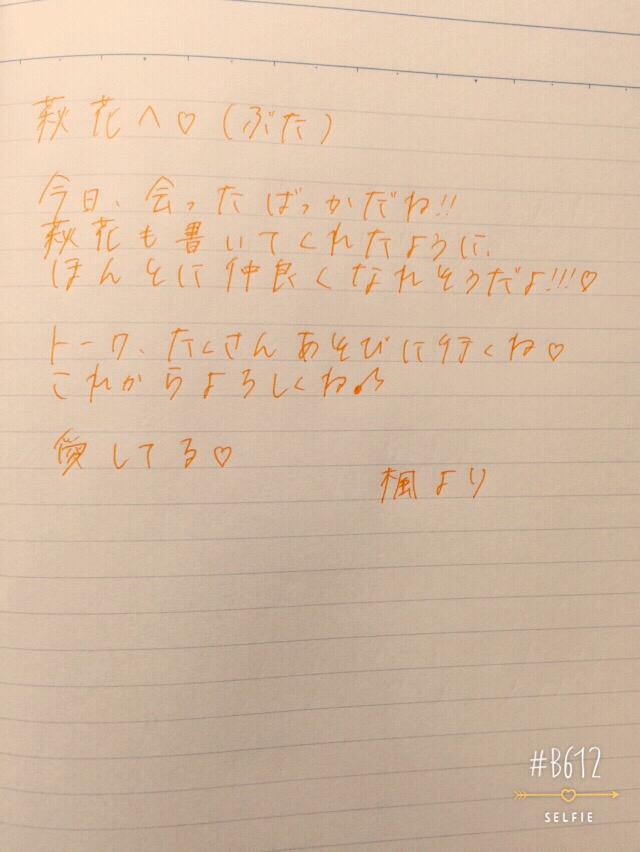 萩花へ♡(ぶた)
今日、会ったばっかだね!!
萩花も書いてくれたように、
ほんとに仲良くなれそうだよ!!!♡
トーク、たくさんあそびに行くね♡
これからよろしくね♪
愛してる♡
楓より
#B612
SELFIE